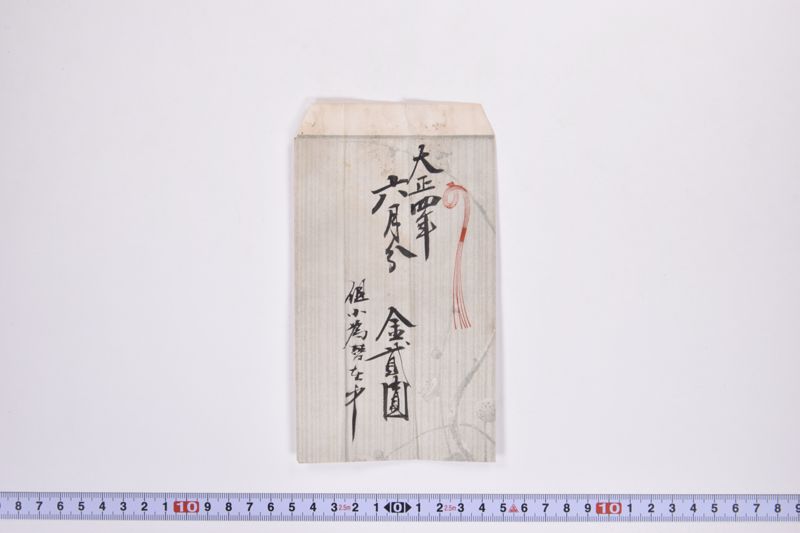 大正四年
六月分
金貳圓
但小為替在中
8 7 6 5 4 3 2 1 10 9 8 7 6 5 4 3 2.5m 2 1 0 1 2 2.5m 3 4 5 6 7 8 9 10 1 2 3 4 5 6 7 8 9